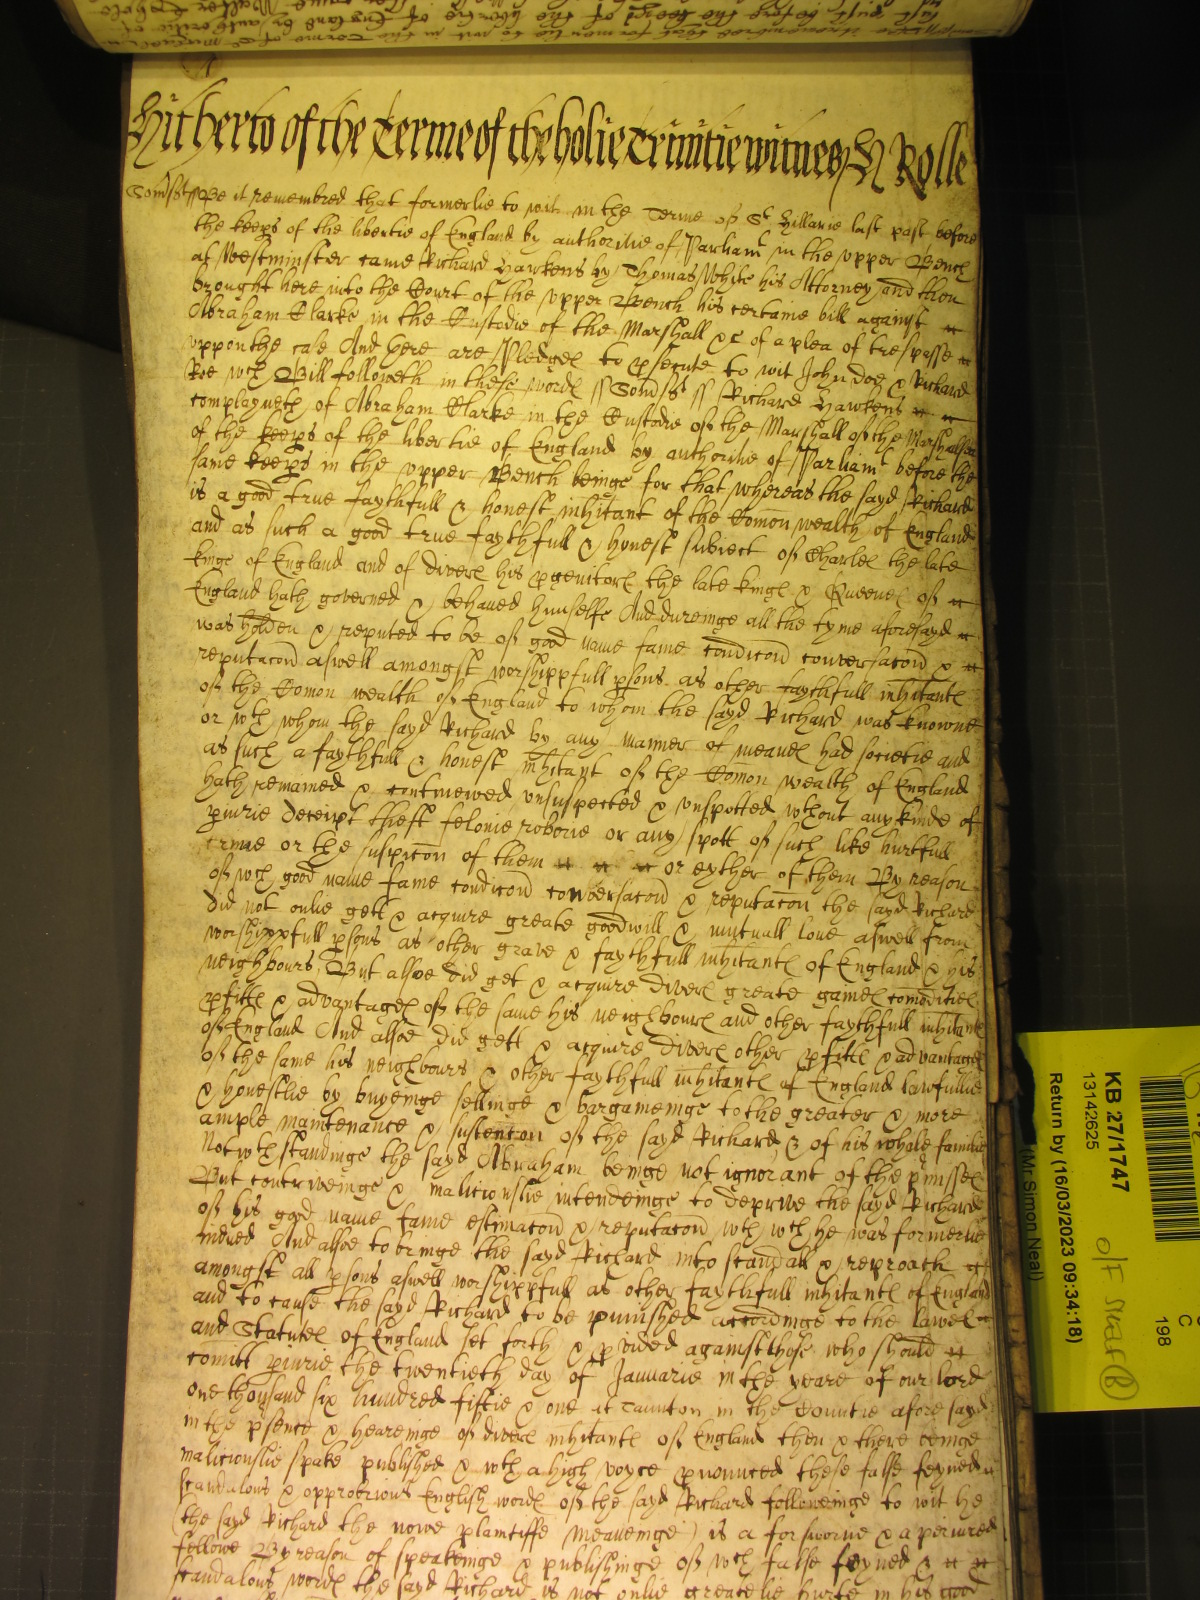 Hitherto of the Terme of the holie Trinitie witnes H Rolle
Somst ss Be it remembred that formerlie to wit in the Terme of St Hillarie last past before
the keeps of the libertie of England by authoritie of Parliamt in the upper Bench
at Westminster came Richard Hawkens by Thomas White his Attorney and then
brought here into the Court of the upper Bench his certaine bill against
Abraham Clarke in the Custodie of the Marshall &c of a plea of trespasse
uppon the case And here are Pledges to psecute to wit John doe & Richard
Roe wch Bill followeth in these words ss Somst ss Richard Hawkens
complayneth of Abraham Clarke in the Custodie of the Marshall of the Marshallsea
of the keeps of the libertie of England by authoritie of Parliamt before the
same keeps in the upper Bench beinge for that whereas the sayd Richard
is a good true faythfull & honest inhitant of the Comon wealth of England
and as such a good true faythfull & honest subiect of Charles the late
kinge of England and of divers his pgenitors the late kings & Queenes of
England hath governed & behaved himselfe And dureinge all the tyme aforesayd
was holden & reputed to be of good name fame condicon conversacon &
reputacon aswell amongst worshippfull psons as other faythfull inhitants
of the Comon wealth of England to whom the sayd Richard was knowne
or wth whom the sayd Richard by any manner of meanes had societie and
as such a faythfull & honest inhitant of the Comon wealth of England
hath remained & continewed unsuspected & unspotted wthout any kinde of
piurie deceipt theft felonie roberie or any spott of such like hurtfull
crime or the suspicon of them or eyther of them By reason
of wch good name fame condicon conversacon & reputacon the sayd Richard
did not onlie gett & acquire greate goodwill & mutuall love aswell from
worshippfull psons as other grave & faythfull inhitants of England & his
neighbours But alsoe did get & acquire divers greate gaines comodities
pfitts & advantages of the same his neighbours and other faythfull inhitants
of England And alsoe did gett & acquire divers other pfitts & advantages
of the same his neighbours & other faythfull inhitants of England lawfullie
& honestlie by buyeinge sellinge & bargaineinge to the greater & more
ample maintenance & sustentcon of the sayd Richard & of his whole familie
Notwthstandinge the sayd Abraham beinge not ignorant of the pmisses
But contriveinge & maliciouslie intendeinge to deprive the sayd Richard
of his good name fame estimacon & reputacon wth wch he was formerlie
indued And alsoe to bringe the sayd Richard into scandall & reproach
amongst all psons aswell worshippfull as other faythfull inhitants of England
and to cause the sayd Richard to be punished accordinge to the lawes
and Statutes of England set forth & pvided against those who should
comitt piurie the twentieth day of Januarie in the yeare of our lord
one thousand six hundred fiftie & one at Taunton in the Countie aforesayd
in the psence & heareinge of divers inhitants of England then & there beinge
maliciouslie spake published & wth a high voyce pnounced these false feyned
scandalous & opprobrious English words of the sayd Richard followeinge to wit he
(the sayd Richard the nowe plaintiffe meaneinge) is a forsworne & a periured
fellowe By reason of speakeinge & publishinge of wch false feyned &
scandalous words the sayd Richard is not onlie greatelie hurte in his good
KB 27/1747
13142625
Return by (16/03/2023 09:34:18)
(Mr Simon Neal)
C
198